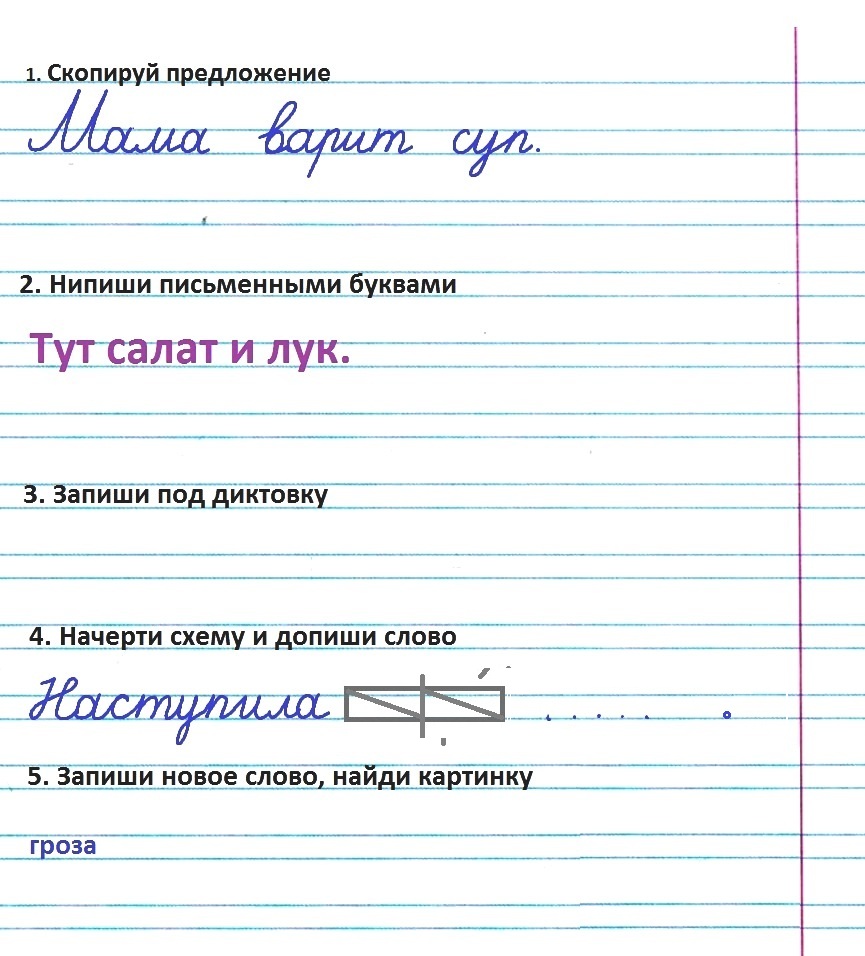 1. Скопируй предложение
Мама варит суп.
2. Нипиши письменными буквами
Тут салат и лук.
3. Запиши под диктовку
4. Начерти схему и допиши слово
Наступила . . . . . .
5. Запиши новое слово, найди картинку
гроза